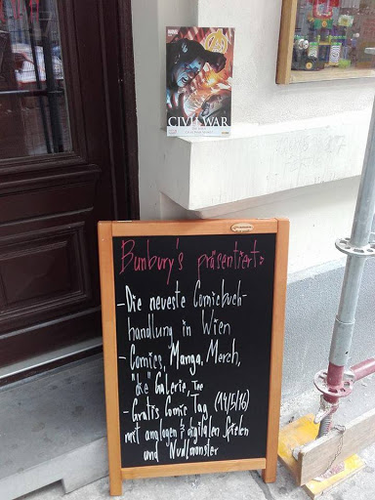 CIVIL WAR
Bunbury's präsentiert:
- Die neueste Comicbuch-
handlung in Wien
- Comics, Manga, Merch,
"die" Galerie, Tee
- Gratis Comic Tag (14/5/16)
mit analogen & digitalen Spielen
und "Nudlmonster